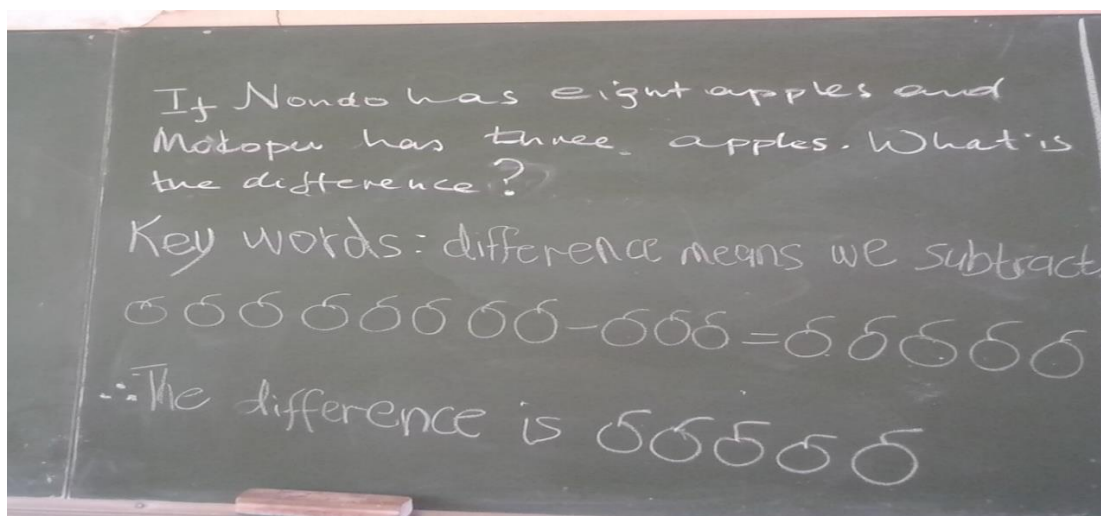 If Nondo has eight apples and
Motopu has three apples. What is
the difference?
Key words: difference means we subtract
- =
∴ The difference is